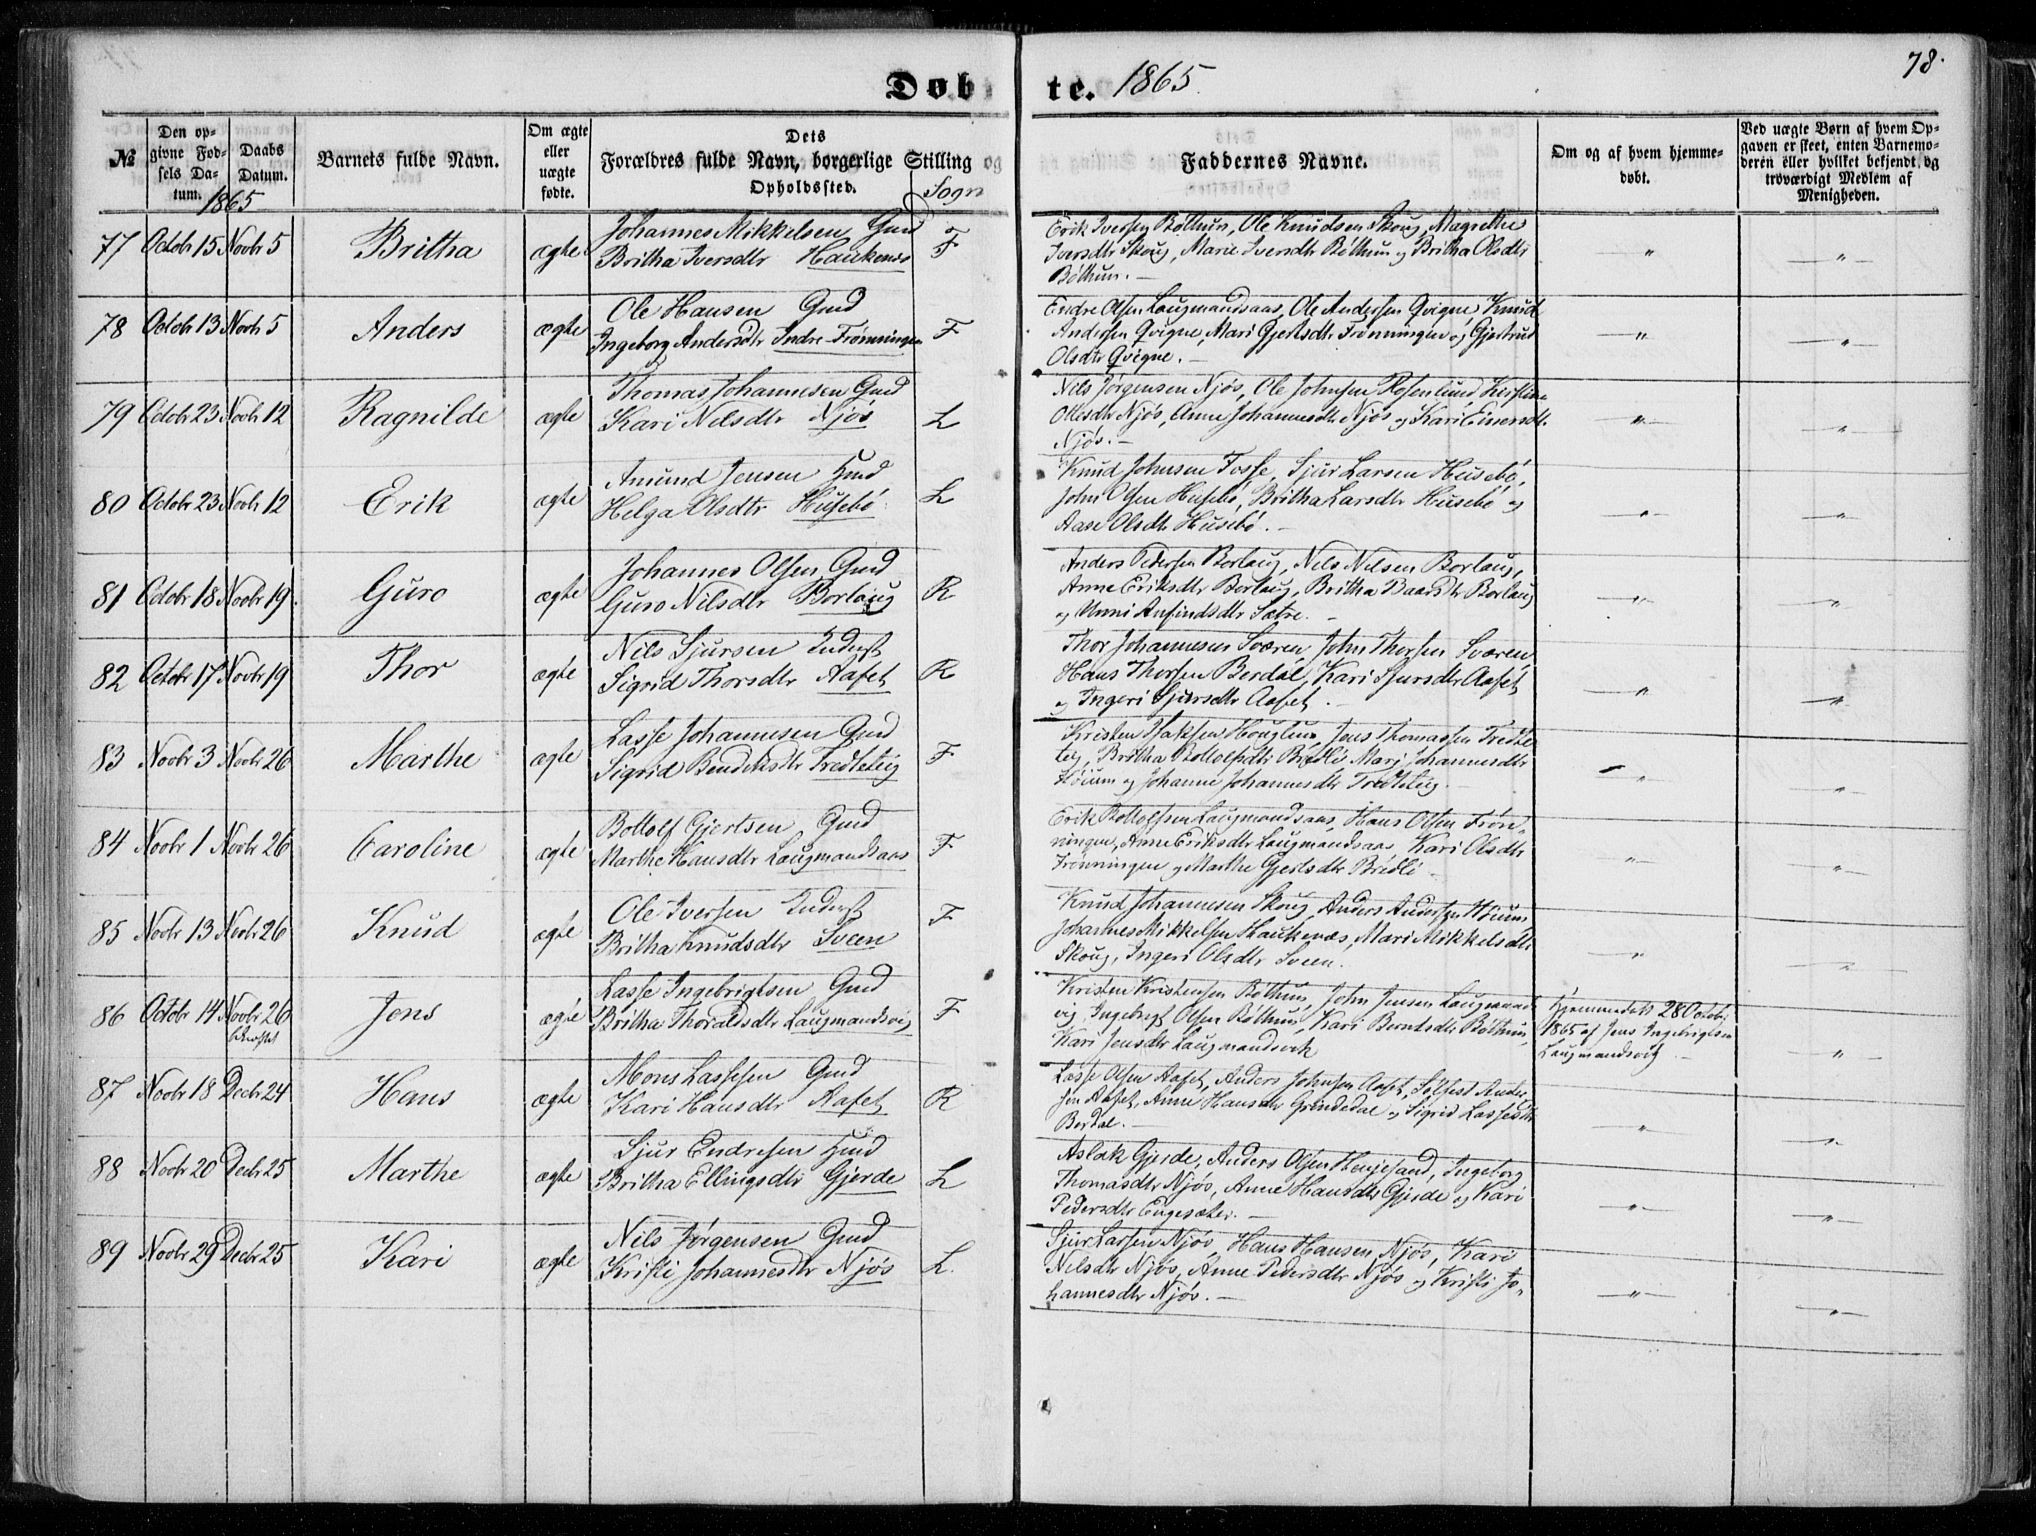 78.
Døbte. 1865.
№
Den opgivne Fødsels Datum.
Daabs Datum.
Barnets fulde Navn.
Om ægte eller uægte fødte.
Dets Forældres fulde Navn, borgerlige Stilling og Opholdssted.
Sogn
Faddernes Navne.
Om og af hvem hjemmedøbt.
Ved uægte Børn af hvem Opgaven er skeet, enten Barnemoderen eller hvilket bekjendt og troværdigt Medlem af Menigheden.
1865
77 Octobr 15 Novbr 5 Britha ægte Johannes Mikkelsen Gmd
Britha Iversdtr Haukenæs F
Erik Iversen Bøthun, Ole Knudsen Skoug, Magrethe
Iversdtr Skoug, Marie Iversdtr Bøthun og Britha Olsdtr
Bøthun. — " — — " —
78 Octobr 13 Novbr 5 Anders ægte Ole Hansen Gmd
Ingeborg Andersdtr Indre-Frønningen F
Endre Olsen Laugmandsaas, Ole Andersen Qvigne Knud
Andersen Qvigne, Mari Gjertsdtr Frønningen og Gjertrud
Olsdtr Qvigne. — " — — " —
79 Octobr 23 Novbr 12 Ragnilde ægte Thomas Johannesen Gmd
Kari Nilsdtr Njøs L
Nils Jørgensen Njøs, Ole Johnsen Rosenlund, Kirstine
Olsdtr Njøs, Anne Johannesdtr Njøs og Kari Einersdtr
Njøs. — " — — " —
80 Octobr 23 Novbr 12 Erik ægte Amund Jensen Hmd
Helga Olsdtr Husebø L
Knud Johnsen Fosse, Sjur Larsen Husebø,
John Olsen Husebø, Britha Larsdtr Husebø og
Aase Olsdtr Husebø. — " — — " —
81 Octobr 18 Novbr 19. Guro ægte Johannes Olsen Gmd
Guro Nilsdtr Borlaug R
Anders Pedersen Borlaug, Nils Nilsen Borlaug,
Anne Eriksdtr Borlaug, Britha Baardsdtr Borlaug
og Unni Anfindsdtr Sætre. — " — — " —
82 Octobr 17 Novbr 19 Thor ægte Nils Sjursen Inderst
Sigrid Thorsdtr Aafet R
Thor Johannesen Sværen John Thorsen Sværen,
Hans Thorsen Berdal, Kari Sjursdtr Aafet
og Ingeri Sjursdtr Aafet. — " — — " —
83 Novbr 3 Novbr 26 Marthe ægte Lasse Johannesen Gmd
Sigrid Bendiksdtr Tredteteig F
Kristen Isaksen Houglum, Jens Thomassen Tredte
teig, Britha Bottolfsdtr Brødli Marj Johannesdtr
Høium og Johanne Johannesdtr Tredteteig. — " — — " —
84 Novbr 1 Novbr 26 Caroline ægte Bottolf Gjertsen Gmd
Marthe Hansdtr Laugmandsaas F
Erik Bottolfsen Laugmandsaas, Hans Olsen Frøn-
ningen, Anne Eriksdtr Laugmandsaas, Kari Olsdtr
Frønningen og Marthe Gjertsdtr Brødli — " — — " —
85 Novbr 13 Novbr 26 Knud ægte Ole Iversen Inderst
Britha Knudsdtr Sveen F
Knud Johannesen Skoug Anders Andersen Høium
Johannes Mikkelsen Haukenæs, Mari Mikkelsdtr
Skoug, Ingeri Olsdtr Sveen. — " — — " —
86 Octobr 14 Novbr 26 Jens ægte Lasse Ingebrigtsen Gmd
Britha Thoraldsdtr Laugmandsvig F
Kristen Kristensen Bøthun, John Jensen Laugmands
vig Ingebrigt Olsen Bøthun, Kari Berntsdtr Bøthun,
Kari Jensdtr Laugmandsvik
Hjemmedøbt 28 Octobr
1865 af Jens Ingebrigtsen
Laugmandsvig — " —
87 Novbr 18 Decbr 24 Hans ægte Mons Lassesen Gmd
Kari Hansdtr Aafet R
Lasse Olsen Aafet, Anders Johnsen Aafet, Sølfest Ander
sen Aafet, Anne Hansdtr Grindedal og Sigrid Lassesdtr
Berdal. — " — — " —
88 Novbr 20 Decbr 25 Marthe ægte Sjur Endresen Hmd
Britha Ellingsdtr Gjerde L
Aslak Gjerde, Anders Olsen Henjesand, Ingeborg
Thomasdtr Njøs, Anne Hansdtr Gjerde og Kari
Pedersdtr Engesæter. — " — — " —
89 Novbr 29 Decbr 25 Kari ægte Nils Jørgensen Gmd
Kristi Johannesdtr Njøs L.
Sjur Larsen Njøs, Hans Hansen Njøs, Kari
Nilsdtr Njøs, Anne Pedersdtr Njøs og Kristi Jo-
hannesdtr Njøs. — " — — " —